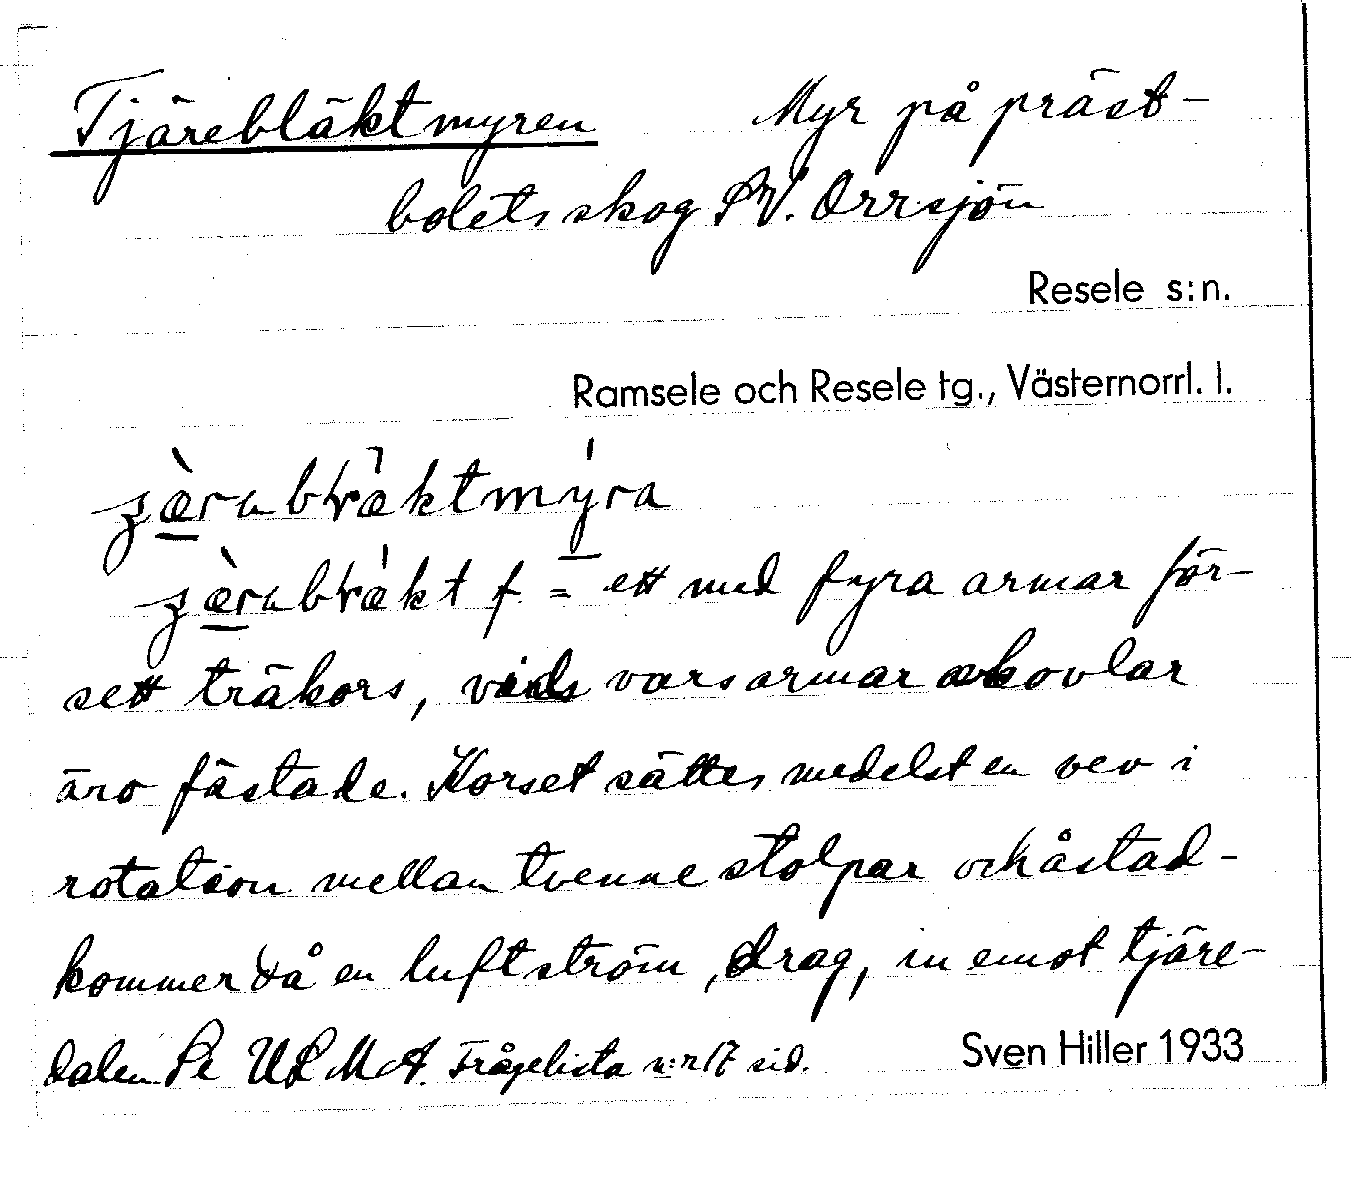 Tjärebläktmyren Myr på präst-
bolets skog SV. Orrsjön
Resele s:n.
Ramsele och Resele tg., Västernorrl. l.
ett med fyra armar för-
sett träkors, vid vars armar skovlar
äro fästade. Korset sättes medelst en vev i
rotation mellan tvenne stolpar och åstad-
kommer då en luftström, drag, in emot tjäre-
dalen Se ULMA. Frågelista n:r 17 sid.
Sven Hiller 1933